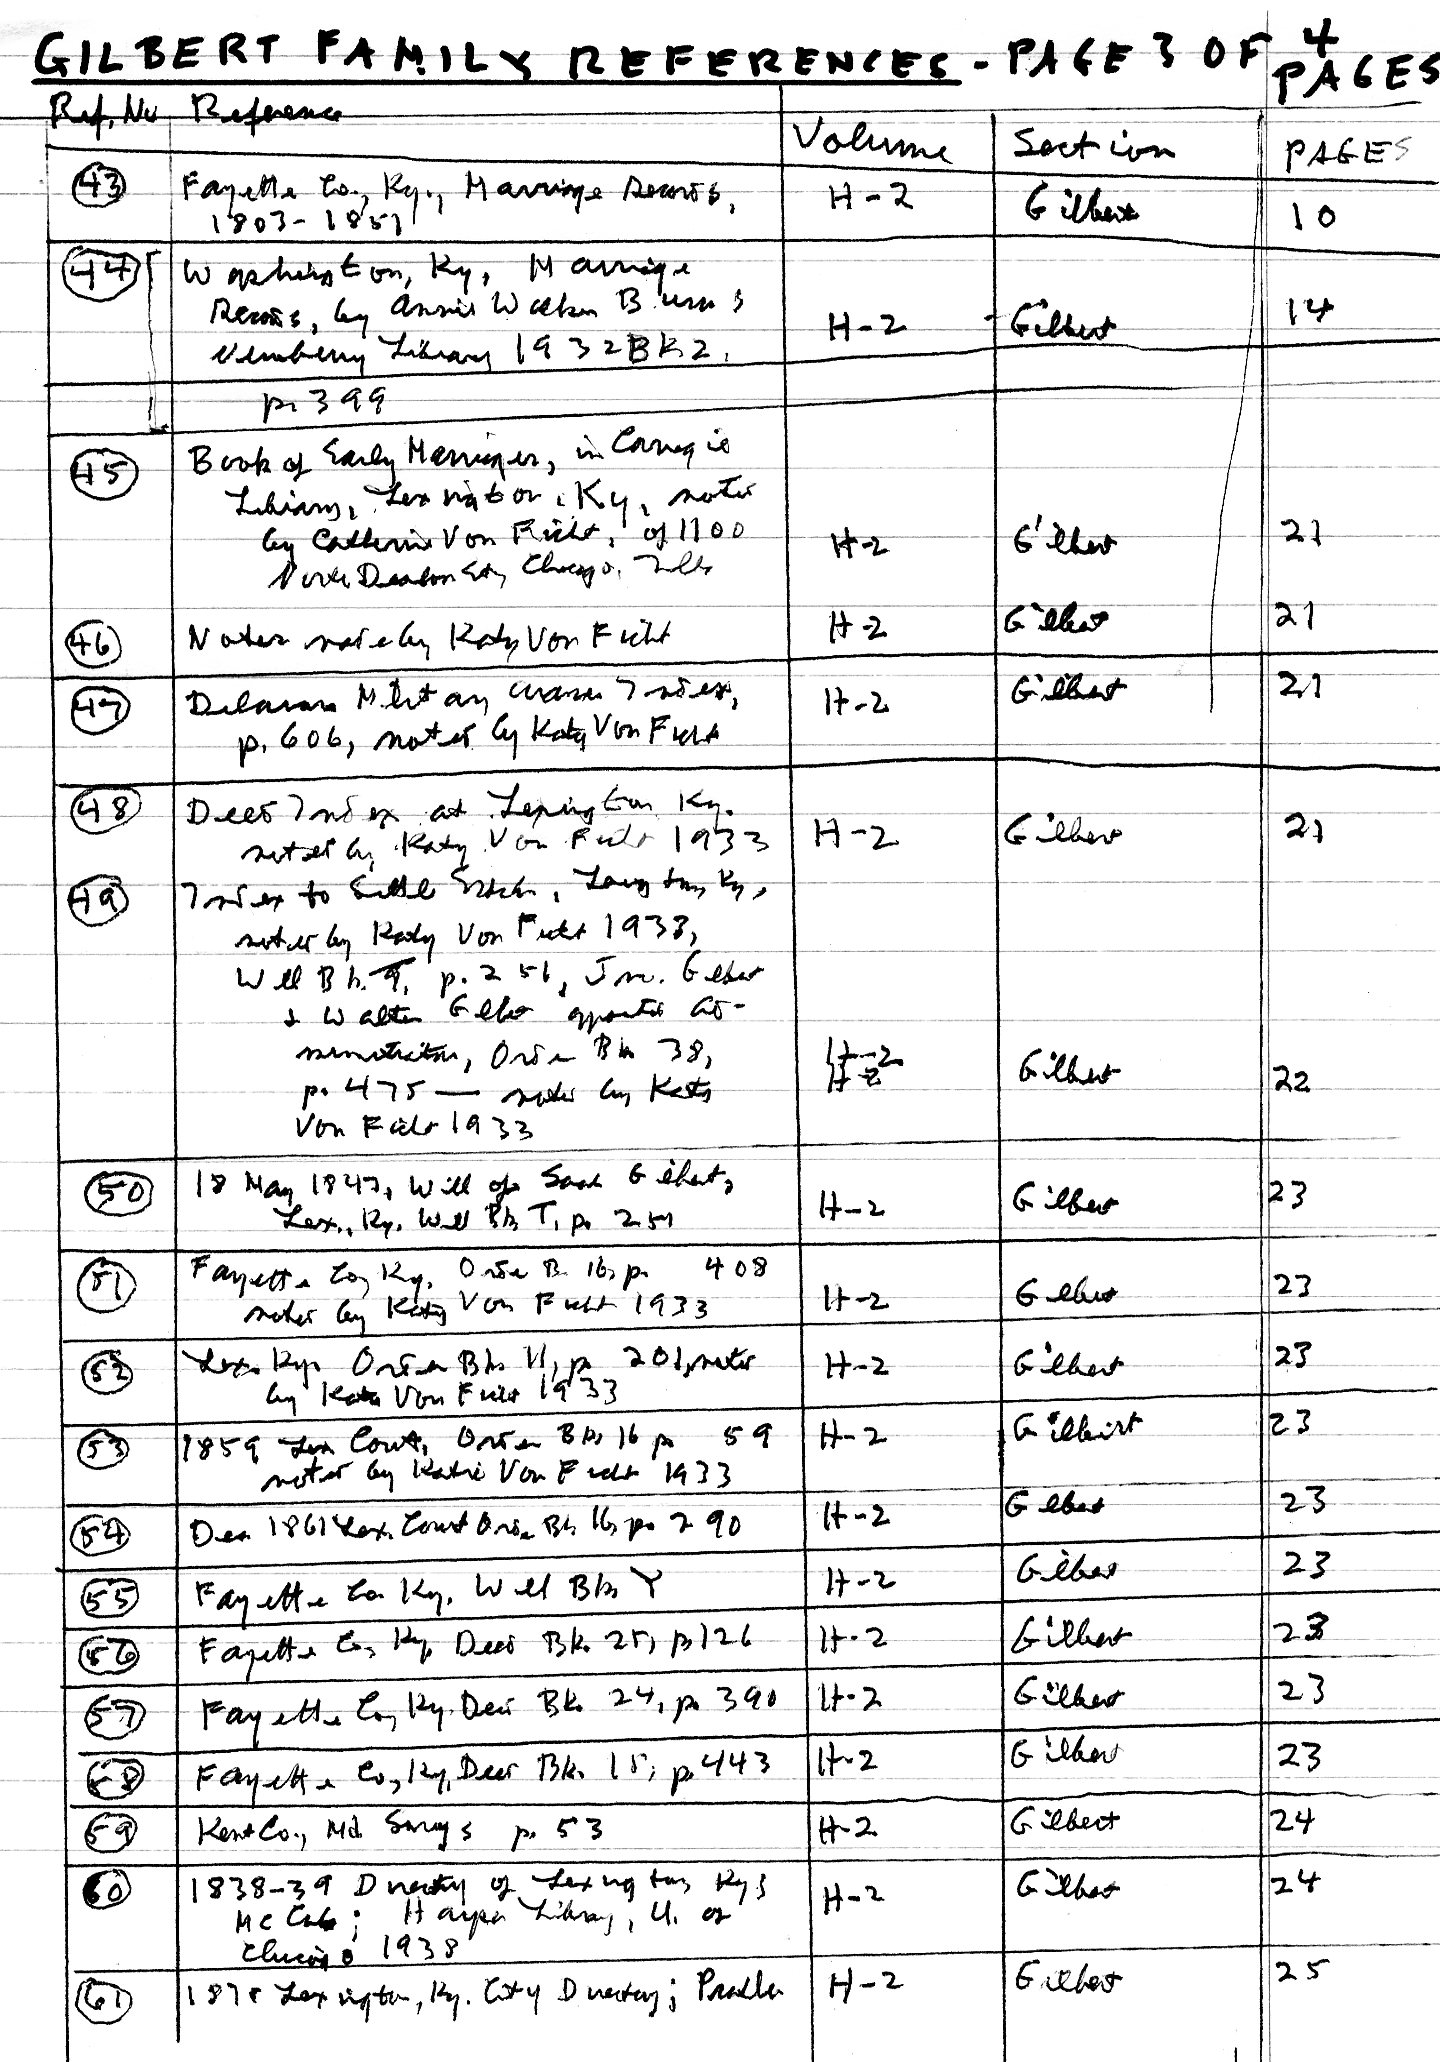 GILBERT FAMILY REFERENCES - PAGE 3 OF 4 PAGES
Ref, No Reference Volume Section PAGES
43 Fayette Co., Ky., Marriage Records, H-2 Gilbert 10
1803-1851
44 Washington, Ky, Marriage
Records, by Annie Walker Burns H-2 Gilbert 14
Newberry Library 1932 BK2,
p. 399
45 Book of Early Marriages, in Carnegie
Library, Lexington, Ky, noted
by Catherine Von Ficht, of 1100 H-2 Gilbert 21
North Dearborn St, Chicago, Ills
46 Notes made by Katy Von Ficht H-2 Gilbert 21
47 Delaware Military Index, H-2 Gilbert 21
p. 606, noted by Katy Von Ficht
48 Deed Index at Lexington Ky. H-2 Gilbert 21
noted by Katy Von Ficht 1933
49 Index to Settl Estates, Lexington, Ky,
noted by Katy Von Ficht 1933,
Will Bk. T, p. 251, Jno. Gilbert
& Walter Gilbert appointed ad-
ministrators, Order Bk 38, H-2
p. 475 — noted by Katy H-2 Gilbert 22
Von Ficht 1933
50 18 May 1847, Will of Sarah Gilbert, H-2 Gilbert 23
Lex., Ky. Will Bk T, p. 251
51 Fayette Co, Ky. Order B. 16, p. 408 H-2 Gilbert 23
noted by Katy Von Ficht 1933
52 Lex. Ky. Order Bk 11, p 201, noted H-2 Gilbert 23
by Katy Von Ficht 1933
53 1859 Lex Court, Order Bk 16 p 59 H-2 Gilbert 23
noted by Katie Von Ficht 1933
54 Dec 1861 Lex. Court Order Bk 16, p. 290 H-2 Gilbert 23
55 Fayette Co. Ky. Will Bk Y H-2 Gilbert 23
56 Fayette Co, Ky Deed Bk. 25, p 126 H-2 Gilbert 23
57 Fayette Co, Ky. Deed Bk. 24, p. 390 H-2 Gilbert 23
58 Fayette Co, Ky, Deed Bk. 15, p. 443 H-2 Gilbert 23
59 Kent Co., Md. Survys p. 53 H-2 Gilbert 24
60 1838-39 Directory of Lexington, Ky; H-2 Gilbert 24
McCabe; Harper Library, U. of
Chicago 1938
61 1878 Lexington, Ky. City Directory; H-2 Gilbert 25